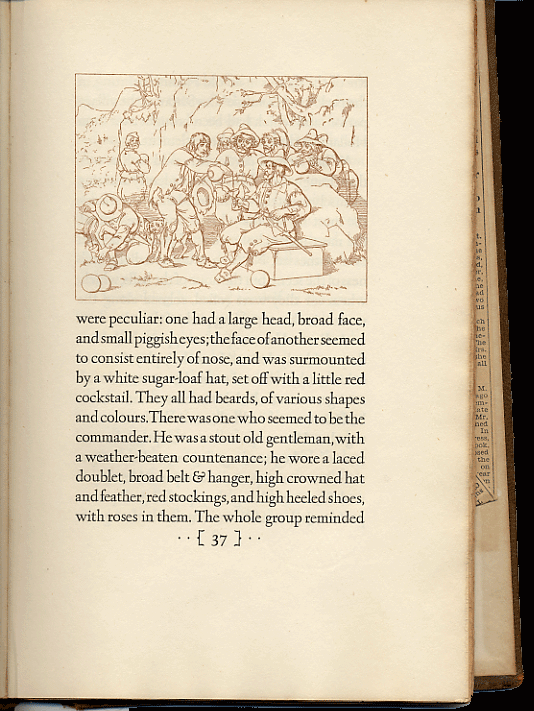 were peculiar: one had a large head, broad face,
and small piggish eyes; the face of another seemed
to consist entirely of nose, and was surmounted
by a white sugar-loaf hat, set off with a little red
cockstail. They all had beards, of various shapes
and colours. There was one who seemed to be the
commander. He was a stout old gentleman, with
a weather-beaten countenance; he wore a laced
doublet, broad belt & hanger, high crowned hat
and feather, red stockings, and high heeled shoes,
with roses in them. The whole group reminded
··[ 37 ]··